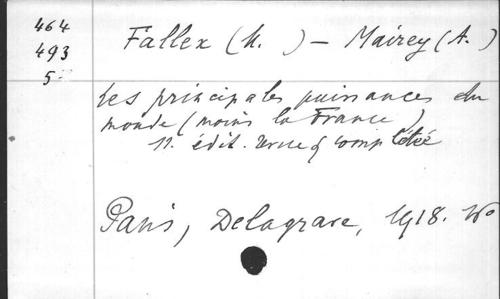 464
493
5
Fallex (M. ) - Mairey (A. )
Les principales puissances du
monde (moins la France)
11. édit. revue & complétée
Paris, Delagrave, 1918.